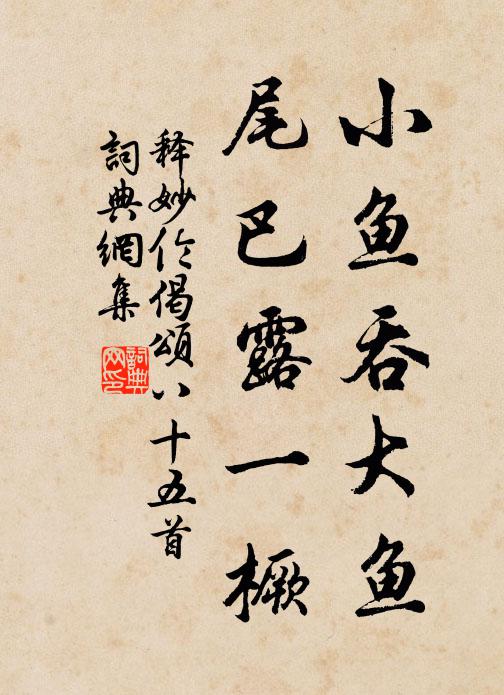 小鱼吞大鱼
尾巴露一橛
释妙伦偈颂八十五首
詞典網集
詞典网印